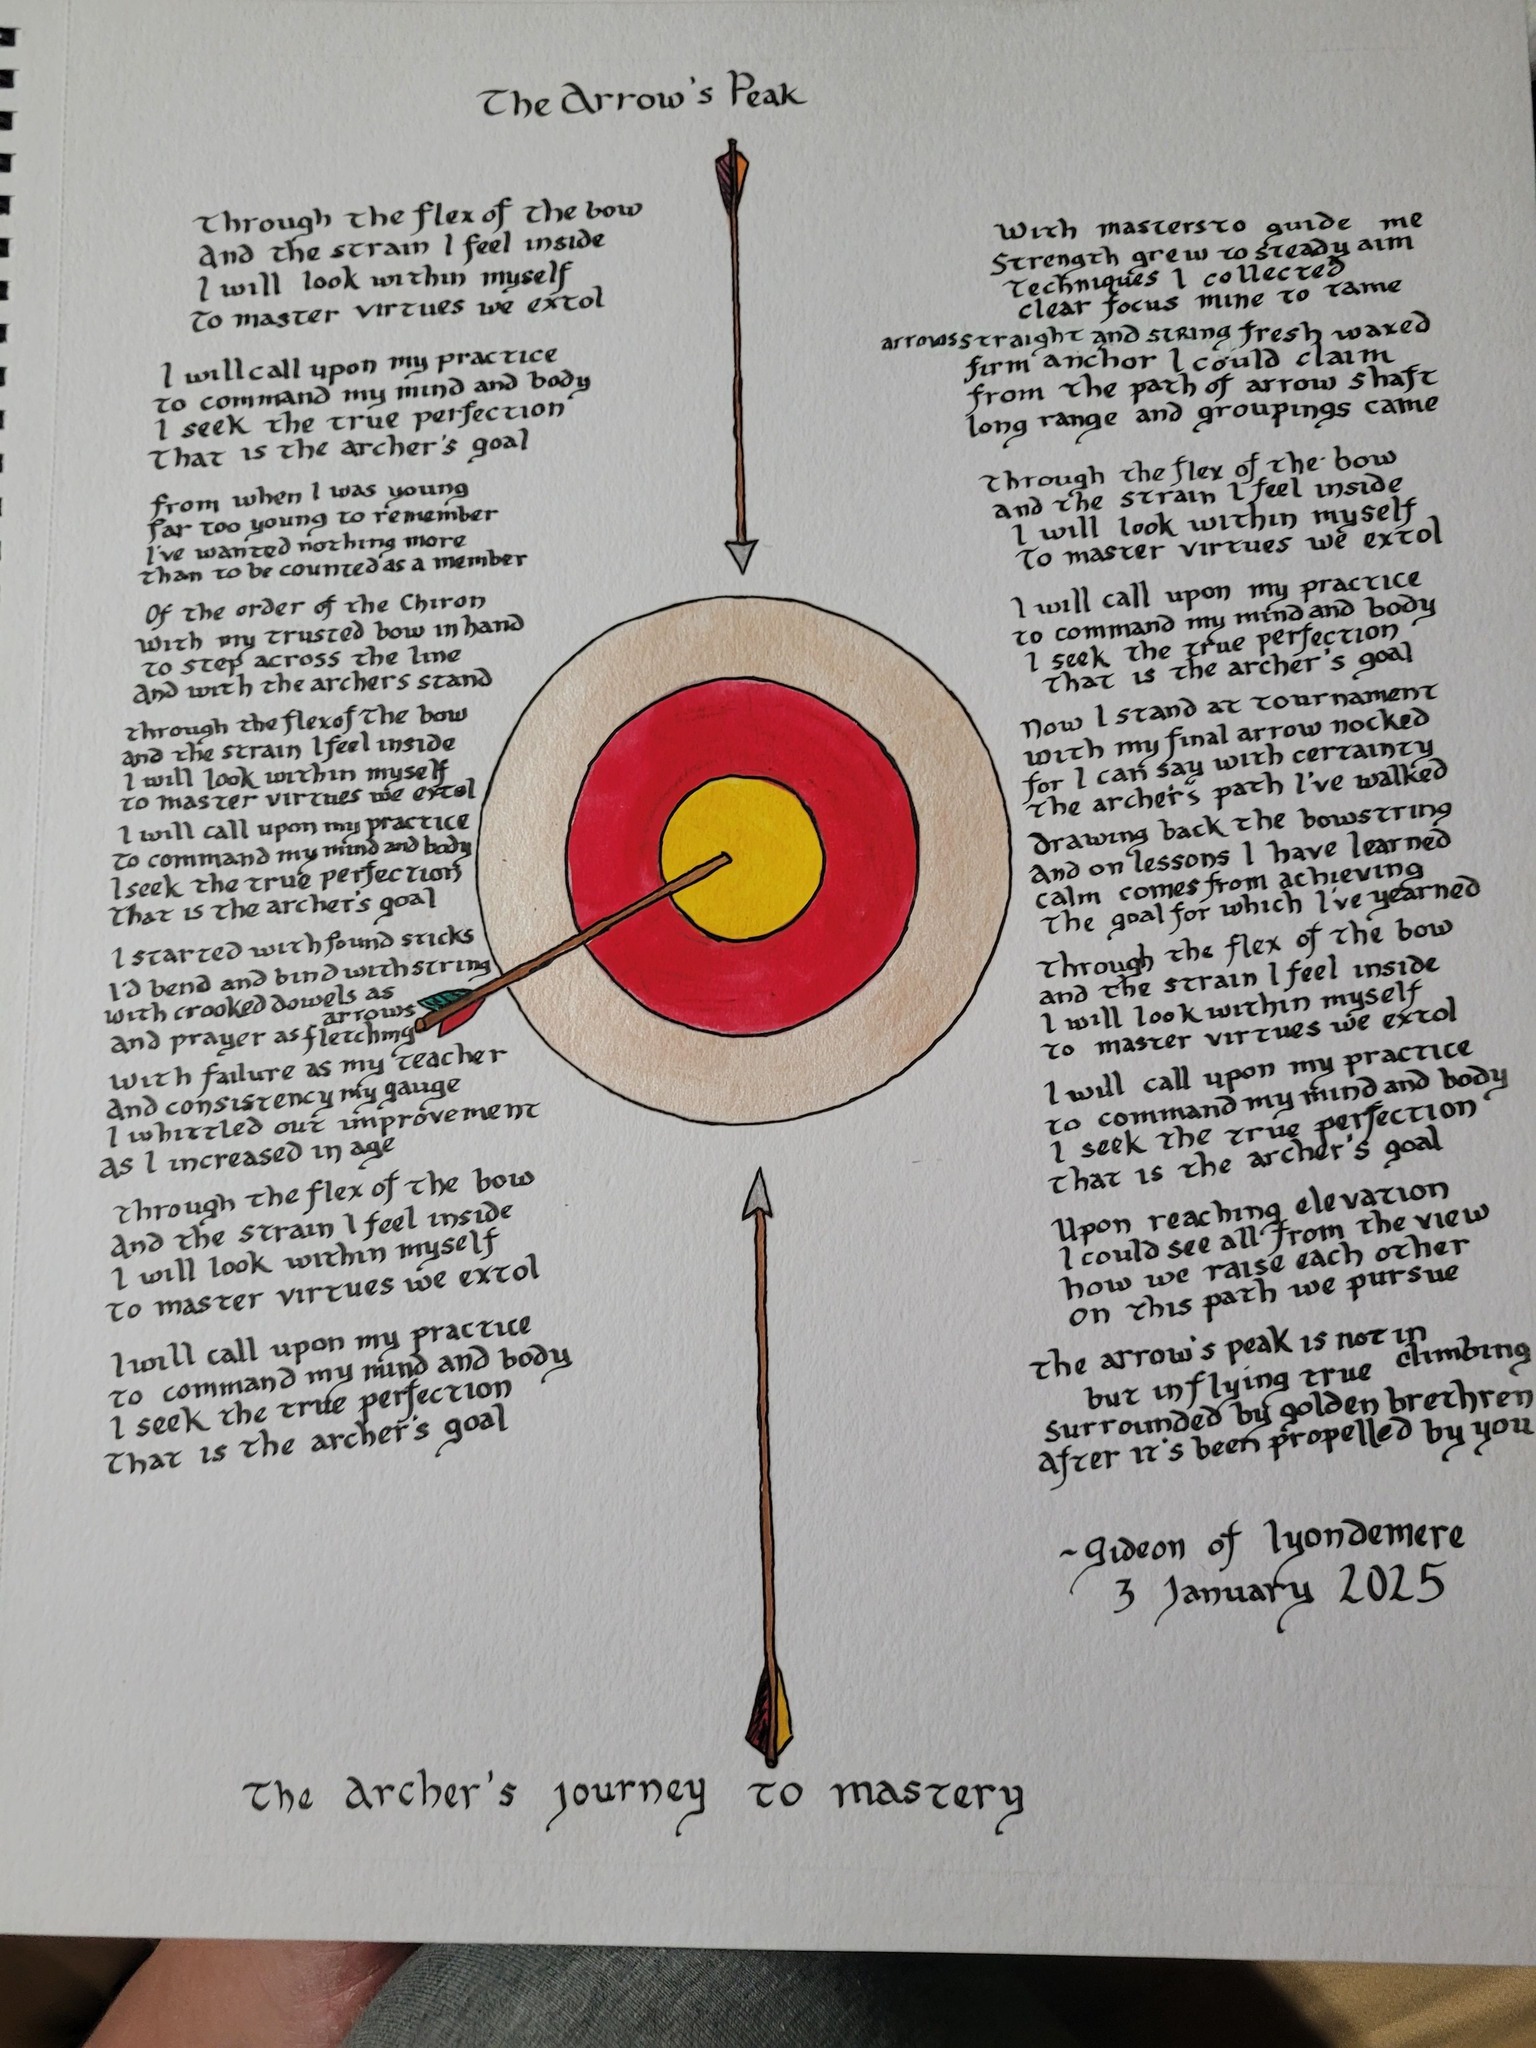 The Arrow's Peak
Through the flex of the bow
And the strain I feel inside
I will look within myself
To master virtues we extol
I will call upon my practice
to command my mind and body
I seek the true perfection
That is the archer's goal
from when I was young
far too young to remember
I've wanted nothing more
than to be counted as a member
Of the order of the Chiron
with my trusted bow in hand
to step across the line
And with the archers stand
through the flex of the bow
and the strain I feel inside
I will look within myself
to master virtues we extol
I will call upon my practice
to command my mind and body
I seek the true perfection
that is the archer's goal
I started with found sticks
I'd bend and bind with string
with crooked dowels as
arrows
and prayer as fletching
with failure as my teacher
And consistency my gauge
I whittled out improvement
As I increased in age
through the flex of the bow
And the strain I feel inside
I will look within myself
to master virtues we extol
I will call upon my practice
to command my mind and body
I seek the true perfection
that is the archer's goal
With masters to guide me
Strength grew to steady aim
techniques I collected
clear focus mine to tame
arrows straight and string fresh waxed
firm anchor I could claim
from the path of arrow shaft
long range and groupings came
through the flex of the bow
and the strain I feel inside
I will look within myself
To master virtues we extol
I will call upon my practice
to command my mind and body
I seek the true perfection
that is the archer's goal
Now I stand at tournament
with my final arrow nocked
for I can say with certainty
the archer's path I've walked
Drawing back the bowstring
And on lessons I have learned
calm comes from achieving
the goal for which I've yearned
through the flex of the bow
and the strain I feel inside
I will look within myself
to master virtues we extol
I will call upon my practice
to command my mind and body
I seek the true perfection
that is the archer's goal
Upon reaching elevation
I could see all from the view
how we raise each other
on this path we pursue
the arrow's peak is not in
climbing
but in flying true
Surrounded by golden brethren
After it's been propelled by you
~Gideon of lyondemere
3 January 2025
The Archer's journey to mastery